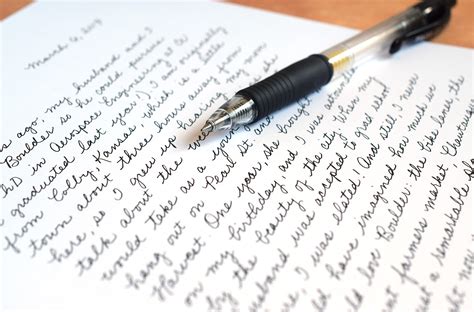 March 6,
s ago, my husband and I
Boulder so he could pursue
hD in Aerospace Engineering at C
graduated last year!). I am originally
from Colby, Kansas, which is a little
town about three hours away from
here, so I grew up hearing my mom
talk about the
would take as a
hang out on Pearl St. and
Harvest. One year, she brought
on my birthday and I was astounded
beauty of the city. When my
husband was accepted to grad school
here, I was elated! And still, I never
have imagined how much we
would love Boulder: the bike lanes, the
farmers market,
just a remarkable
my